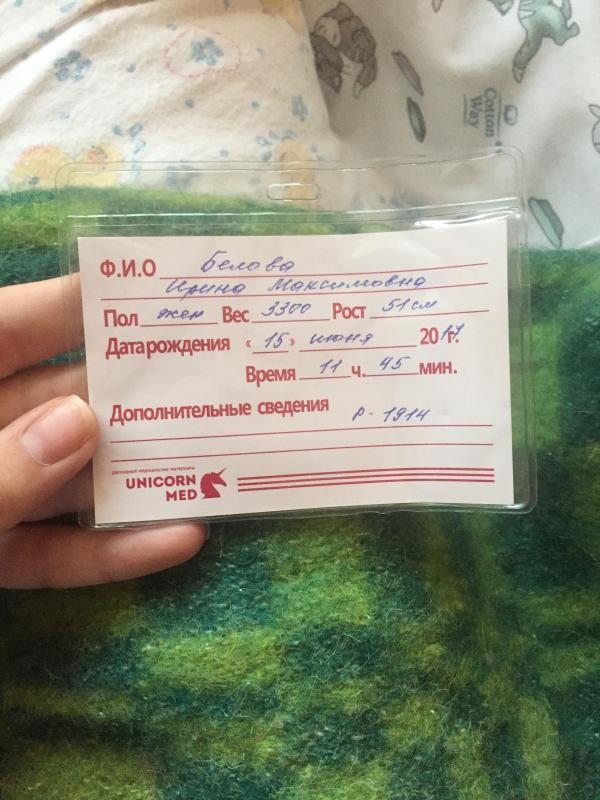 Cotton Way
Ф.И.О Белова
Ирина Максимовна
Пол жен Вес 3300 Рост 51 см
Дата рождения «15» июня 2017г.
Время 11 ч. 45 мин.
Дополнительные сведения Р-1914
расходные медицинские материалы
UNICORN
MED